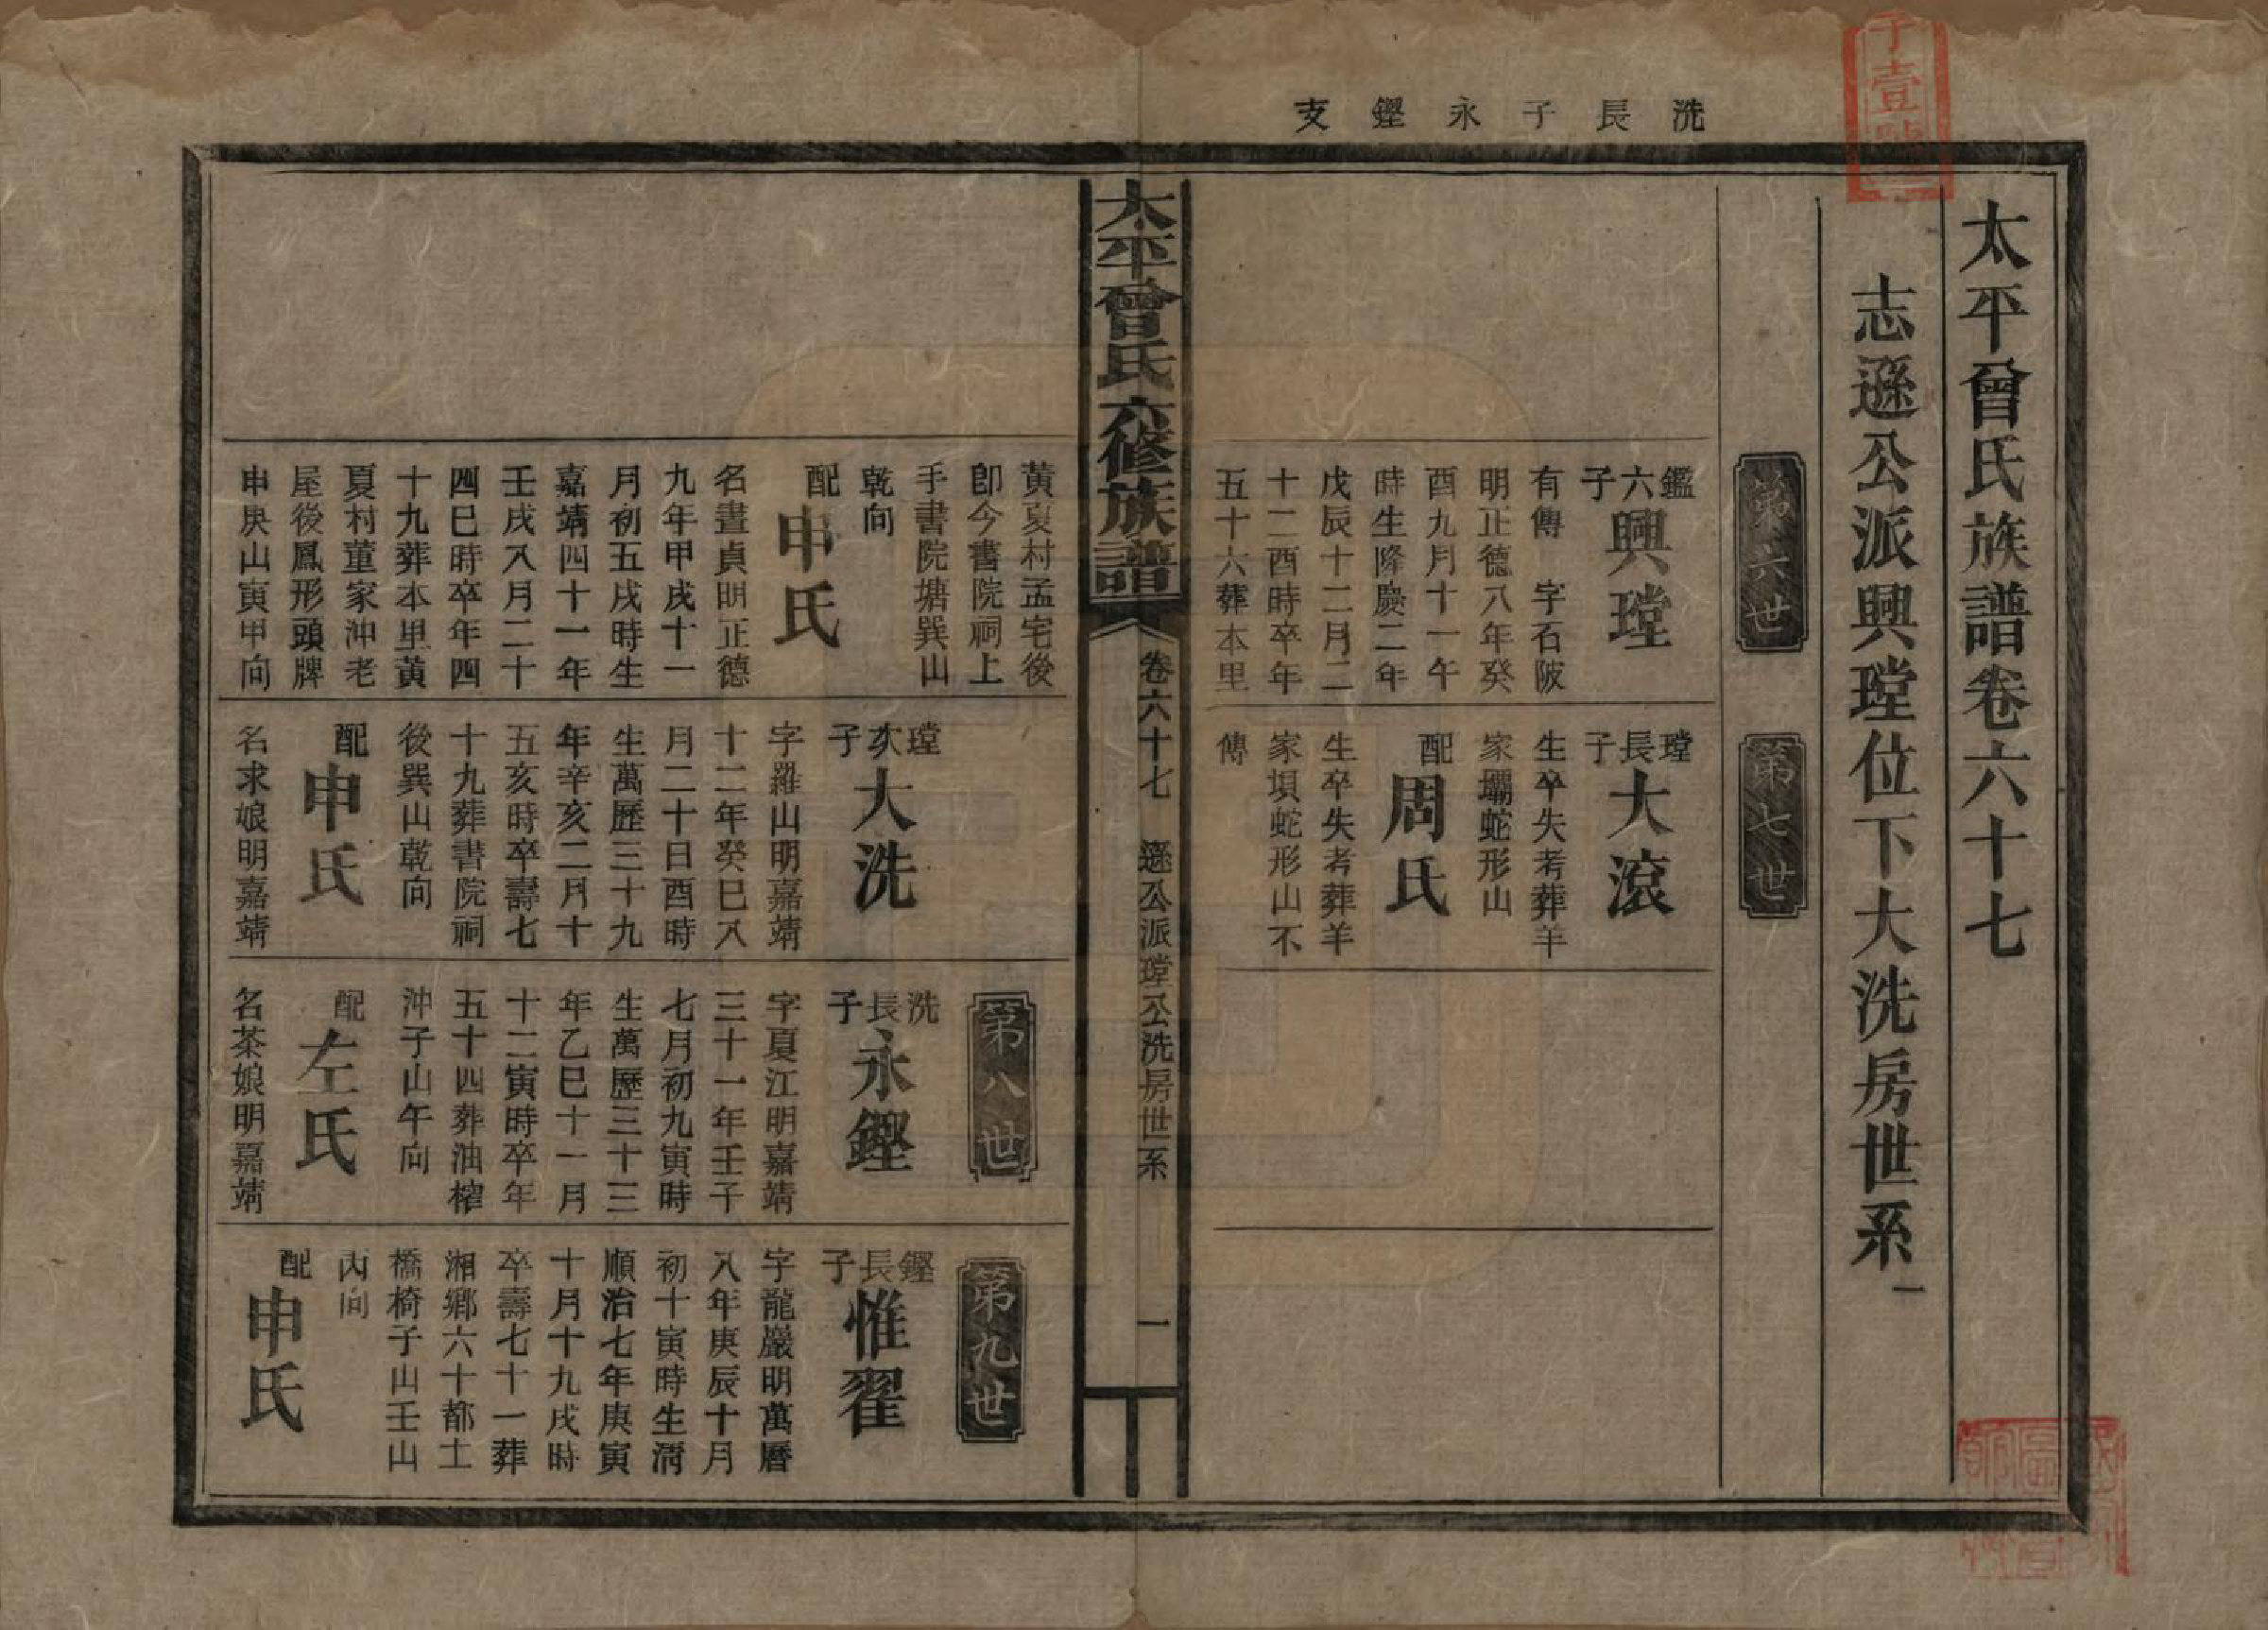 洗長子永鏗支
太平曾氏族譜卷六十七
志遜公派興瑝位下大洗房世系一
第六世
鑑六子
興瑝
有傳　字石陂
明正德八年癸
酉九月十一午
時生隆慶二年
戊辰十二月二
十二酉時卒年
五十六葬本里
第七世
瑝長子
大滾
生卒失考葬羊
家壩蛇形山
配
周氏
生卒失考葬羊
家垻蛇形山不
傳
太平曾氏六修族譜
卷六十七　遜公派瑝公洗房世系　一
黃夏村孟宅後
卽今書院祠上
手書院塘巽山
乾向
配
申氏
名晝貞明正德
九年甲戌十一
月初五戌時生
嘉靖四十一年
壬戌八月二十
四巳時卒年四
十九葬本里黃
夏村董家沖老
屋後鳳形頭牌
申庚山寅甲向
瑝次子
大洗
字羅山明嘉靖
十二年癸巳八
月二十日酉時
生萬歷三十九
年辛亥二月十
五亥時卒壽七
十九葬書院祠
後巽山乾向
配
申氏
名求娘明嘉靖
第八世
洗長子
永鏗
字夏江明嘉靖
三十一年壬子
七月初九寅時
生萬歷三十三
年乙巳十一月
十二寅時卒年
五十四葬油榨
沖子山午向
配
左氏
名茶娘明嘉靖
第九世
鏗長子
惟翟
字龍巖明萬曆
八年庚辰十月
初十寅時生淸
順治七年庚寅
十月十九戌時
卒壽七十一葬
湘鄉六十都土
橋椅子山壬山
丙向
配
申氏